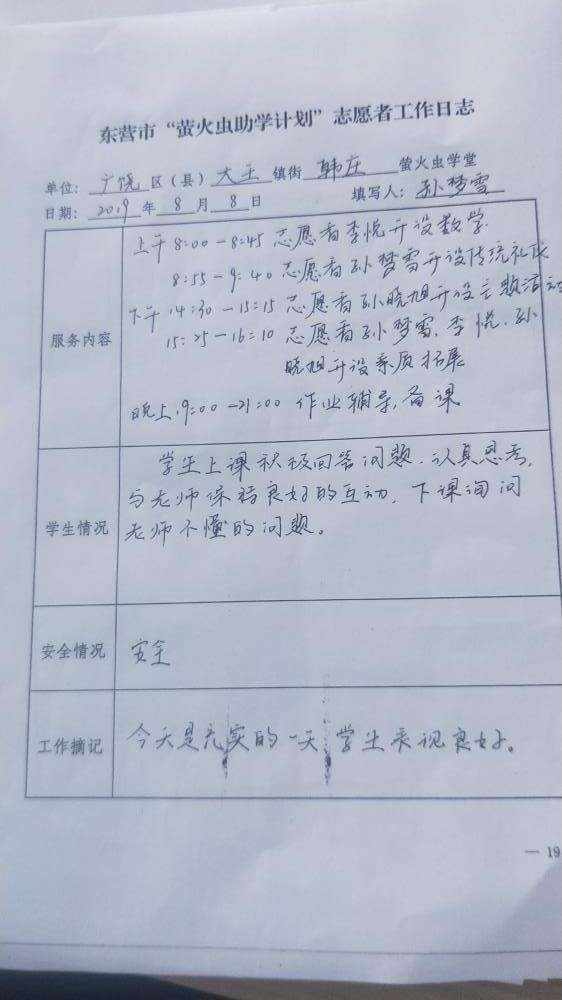 东营市“萤火虫助学计划”志愿者工作日志
单位：广饶区（县）大王镇街韩庄萤火虫学堂
日期：2019年8月8日 填写人：孙梦雪
服务内容
上午 8:00-8:45 志愿者李悦开设数学
8:55-9:40 志愿者孙梦雪开设传统礼仪
下午 14:30-15:15 志愿者孙晓旭开设主题活动
15:25-16:10 志愿者孙梦雪、李悦、孙
晓旭开设素质拓展
晚上19:00-21:00 作业辅导,备课
学生情况
学生上课积极回答问题，认真思考，
与老师保持良好的互动，下课询问
老师不懂的问题。
安全情况
安全
工作摘记
今天是充实的一天，学生表现良好。
— 19